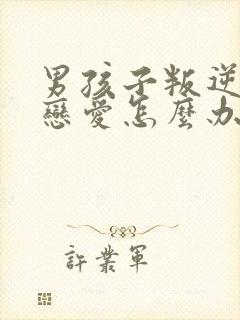 男孩子叛逆
戀愛怎麼办
許業軍